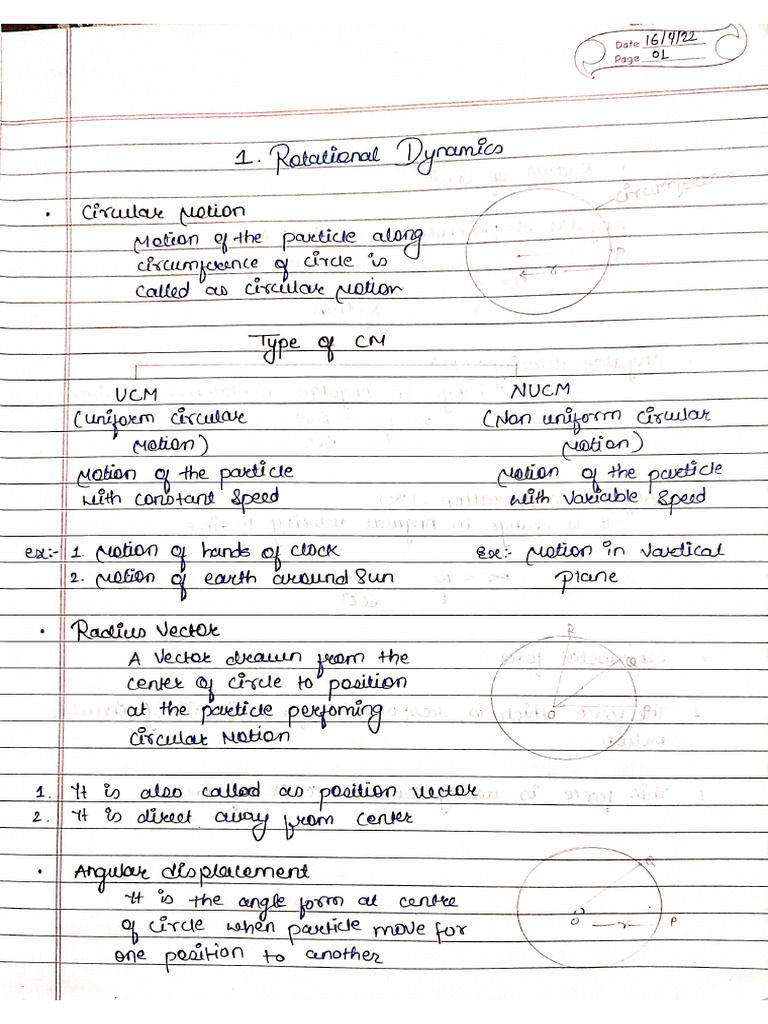 Date 16/4/22
Page 01
1. Rotational Dynamics
• Circular Motion
circumference
Motion of the particle along
circumference of circle is
called as circular Motion
P
r
Type of CM
UCM NUCM
(uniform circular (Non uniform circular
Motion) Motion)
Motion of the particle Motion of the particle
with constant Speed with variable Speed
ex:- 1. Motion of hands of clock Ex:- Motion in Vardical
2. Motion of earth around Sun plane
• Radius Vector
P
A vector drawn from the
Q
center of circle to position
O
at the particle perfoming
circular Motion
1. It is also called as position vector
2. It is direct away from center
• Angular displacement
Q
It is the angle form at centre
of circle when particle move for
O r P
one position to another